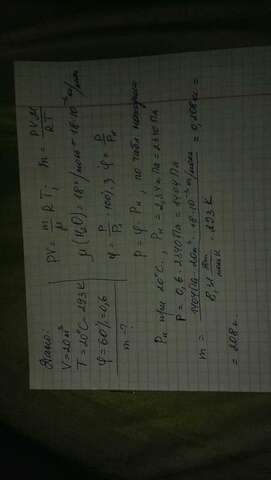 Дано:
V=20м³
T=20°C=293K
φ=60%=0,6
m-?
PV=m/μ RT; m=PVμ/RT
μ(H₂O)=18 г/моль=18·10⁻³ кг/моль
φ=P/Pн·100%; φ=P/Pн
P=φ·Pн, по табл. находим
Pн при 20°C, Pн=2,34кПа=2340Па
P=0,6·2340Па=1404Па
m=1404Па·20м³·18·10⁻³кг/моль / 8,31 Дж/моль·К · 293К=0,208кг=
=208г.